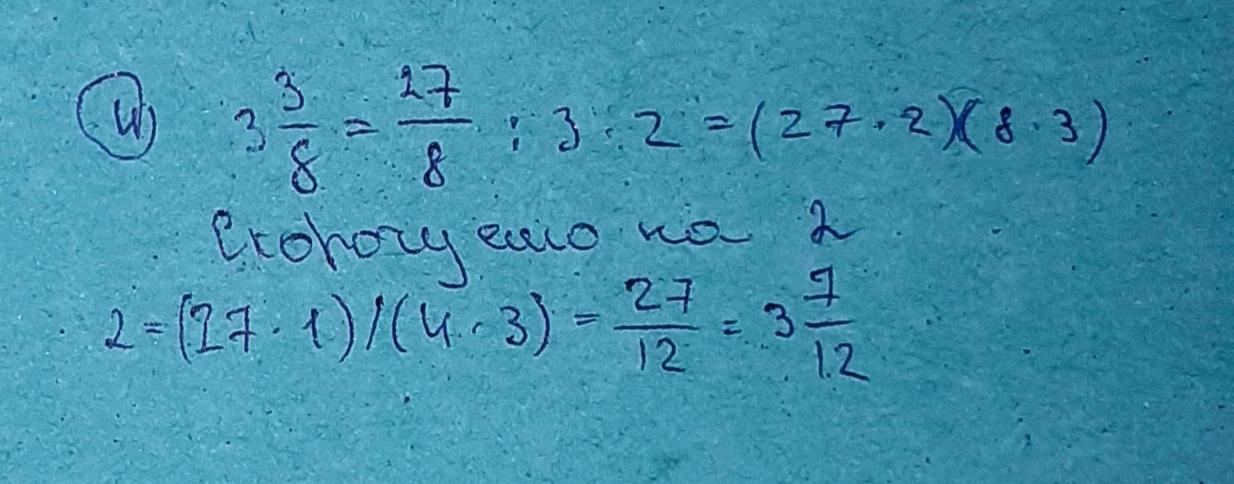 4) 3 3/8 = 27/8 : 3 · 2 = (27 · 2)(8 · 3)
Скорочуємо на 2
2 = (27 · 1)/(4 · 3) = 27/12 = 3 7/12